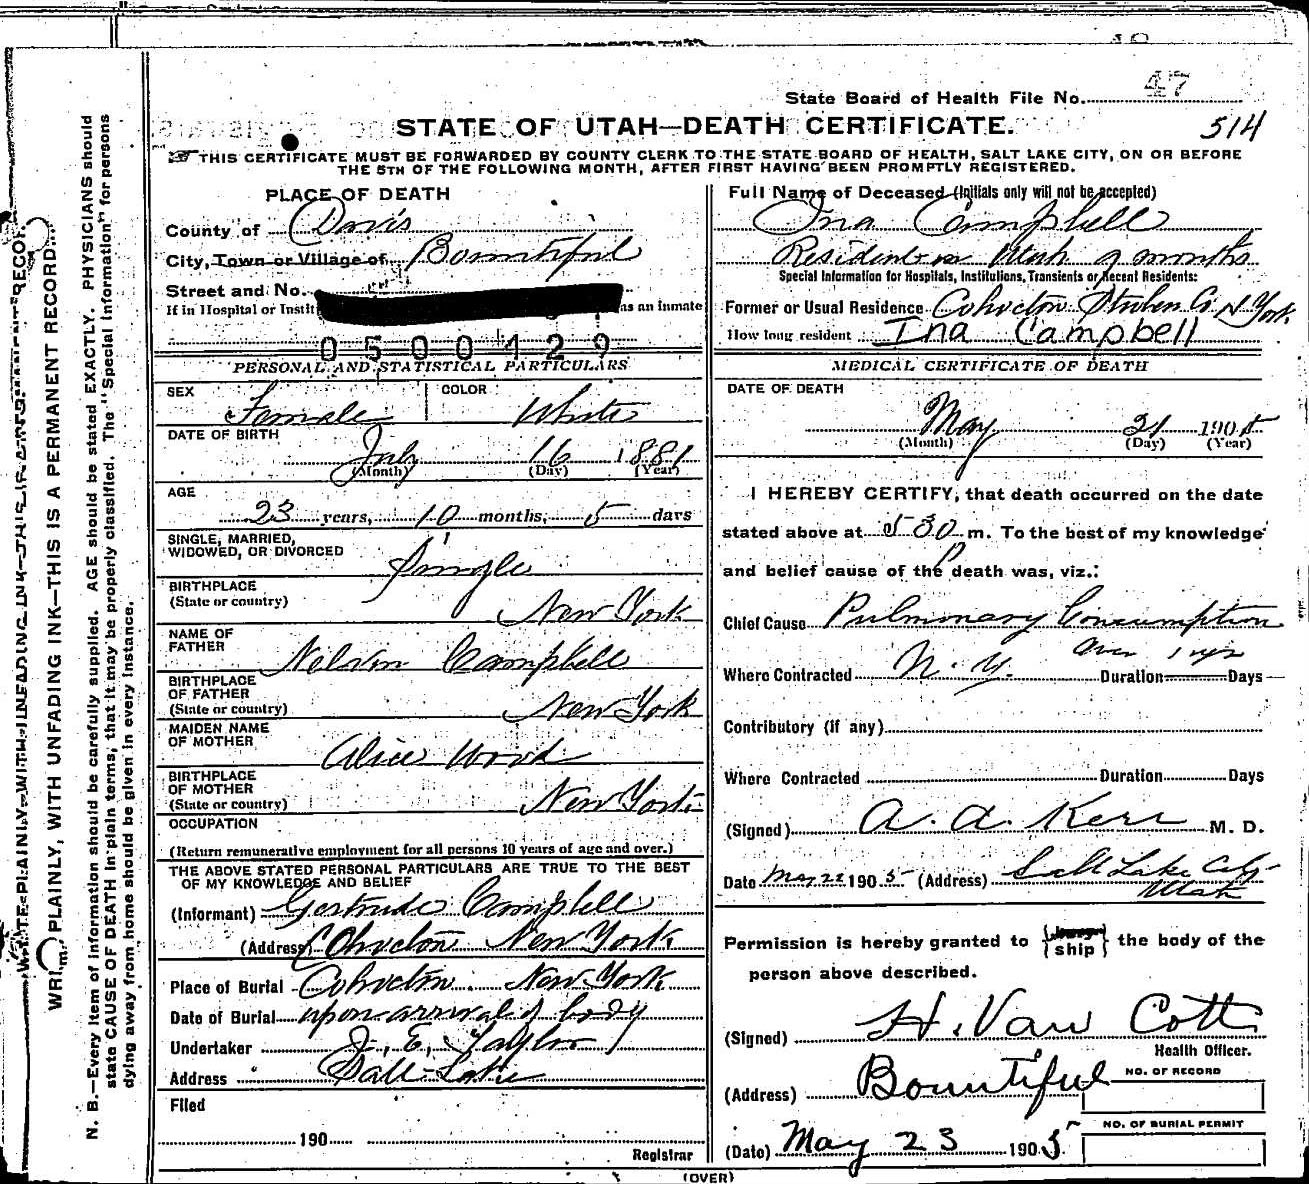 State Board of Health File No. 47
STATE OF UTAH—DEATH CERTIFICATE.
514
THIS CERTIFICATE MUST BE FORWARDED BY COUNTY CLERK TO THE STATE BOARD OF HEALTH, SALT LAKE CITY, ON OR BEFORE
THE 5TH OF THE FOLLOWING MONTH, AFTER FIRST HAVING BEEN PROMPTLY REGISTERED.
PLACE OF DEATH
County of Davis
City, Town or Village of Bountiful
Street and No.
If in Hospital or Instit as an inmate
0500129
PERSONAL AND STATISTICAL PARTICULARS
SEX Female COLOR White
DATE OF BIRTH
July 16 1881
(Month) (Day) (Year)
AGE
23 years, 10 months, 5 days
SINGLE, MARRIED,
WIDOWED, OR DIVORCED Single
BIRTHPLACE
(State or country) New York
NAME OF
FATHER Nelson Campbell
BIRTHPLACE
OF FATHER
(State or country) New York
MAIDEN NAME
OF MOTHER Alice Wood
BIRTHPLACE
OF MOTHER
(State or country) New York
OCCUPATION
(Return remunerative employment for all persons 10 years of age and over.)
THE ABOVE STATED PERSONAL PARTICULARS ARE TRUE TO THE BEST
OF MY KNOWLEDGE AND BELIEF
(Informant) Gertrude Campbell
(Address) Cohocton New York
Place of Burial Cohocton New York
Date of Burial upon arrival of body
Undertaker J. E. Taylor
Address Salt Lake
Filed
190
Registrar
Full Name of Deceased (Initials only will not be accepted)
Ina Campbell
Resident in Utah 9 months
Special Information for Hospitals, Institutions, Transients or Recent Residents:
Former or Usual Residence Cohocton Steuben Co. N York.
How long resident Ina Campbell
MEDICAL CERTIFICATE OF DEATH
DATE OF DEATH
May 21 1905
(Month) (Day) (Year)
I HEREBY CERTIFY, that death occurred on the date
stated above at 5 30 P m. To the best of my knowledge
and belief cause of the death was, viz.:
Chief Cause Pulmonary Consumption
Over 1 yr
Where Contracted N. Y. Duration Days
Contributory (if any)
Where Contracted Duration Days
(Signed) A. A. Kerr M. D.
Date May 22 1905 (Address) Salt Lake City
Utah
Permission is hereby granted to ship the body of the
person above described.
(Signed) H. Van Cott
Health Officer.
(Address) Bountiful
NO. OF RECORD
NO. OF BURIAL PERMIT
(Date) May 23 1905
(OVER)
WRITE PLAINLY, WITH UNFADING INK—THIS IS A PERMANENT RECORD.
N. B.—Every item of information should be carefully supplied. AGE should be stated EXACTLY. PHYSICIANS should
state CAUSE OF DEATH in plain terms, that it may be properly classified. The "Special Information" for persons
dying away from home should be given in every instance.